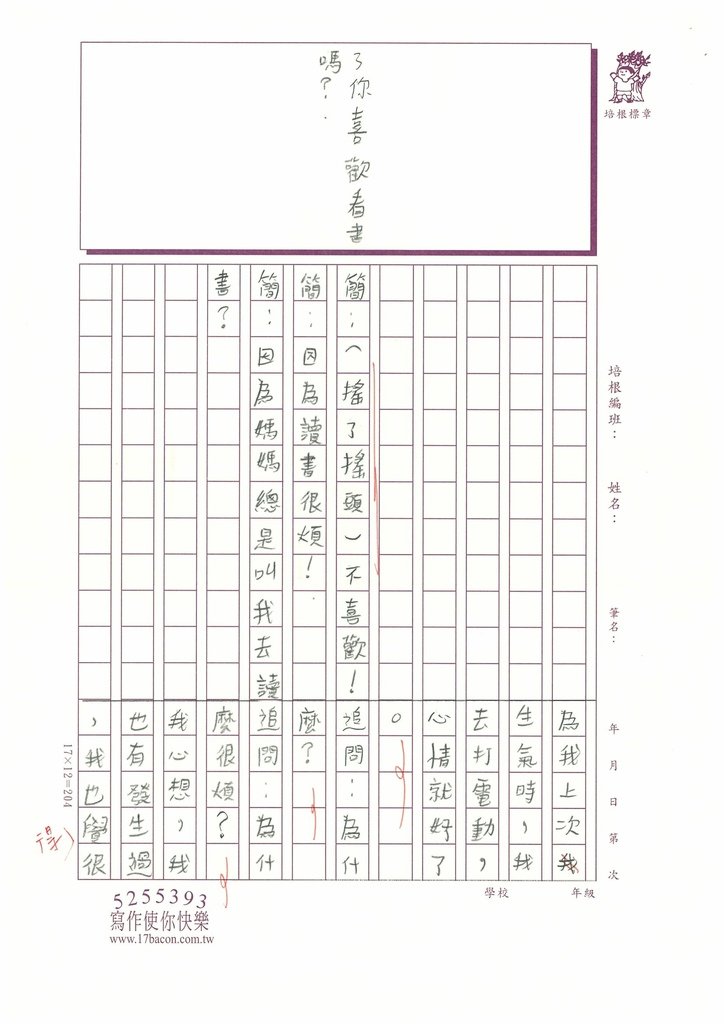 了你喜歡看書
嗎?
培根標章
培根編班:
姓名:
筆名:
年 月 日 第 次
學校 年級
為我上次我
生氣時,我
去打電動,
心情就好了
。
簡:(搖了搖頭)不喜歡!追問:為什
簡:因為讀書很煩!麼?
簡:因為媽媽總是叫我去讀追問:為什
書?麼很煩?
我心想,我
也有發生過
,我也覺很
得
17×12=204
5255393
寫作使你快樂
www.17bacon.com.tw